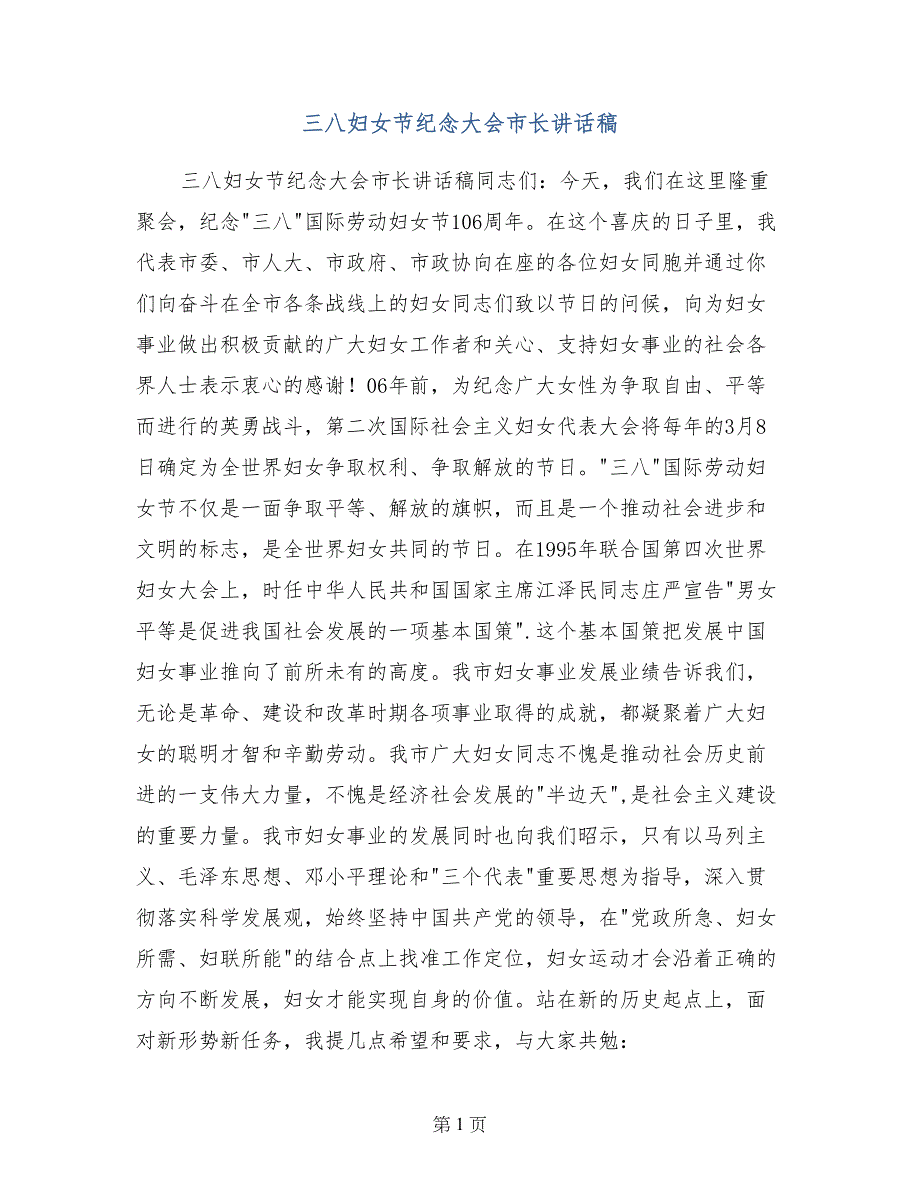 三八妇女节纪念大会市长讲话稿
三八妇女节纪念大会市长讲话稿同志们：今天，我们在这里隆重
聚会，纪念"三八"国际劳动妇女节106周年。在这个喜庆的日子里，我
代表市委、市人大、市政府、市政协向在座的各位妇女同胞并通过你
们向奋斗在全市各条战线上的妇女同志们致以节日的问候，向为妇女
事业做出积极贡献的广大妇女工作者和关心、支持妇女事业的社会各
界人士表示衷心的感谢！06年前，为纪念广大女性为争取自由、平等
而进行的英勇战斗，第二次国际社会主义妇女代表大会将每年的3月8
日确定为全世界妇女争取权利、争取解放的节日。"三八"国际劳动妇
女节不仅是一面争取平等、解放的旗帜，而且是一个推动社会进步和
文明的标志，是全世界妇女共同的节日。在1995年联合国第四次世界
妇女大会上，时任中华人民共和国国家主席江泽民同志庄严宣告"男女
平等是促进我国社会发展的一项基本国策".这个基本国策把发展中国
妇女事业推向了前所未有的高度。我市妇女事业发展业绩告诉我们，
无论是革命、建设和改革时期各项事业取得的成就，都凝聚着广大妇
女的聪明才智和辛勤劳动。我市广大妇女同志不愧是推动社会历史前
进的一支伟大力量，不愧是经济社会发展的"半边天",是社会主义建设
的重要力量。我市妇女事业的发展同时也向我们昭示，只有以马列主
义、毛泽东思想、邓小平理论和"三个代表"重要思想为指导，深入贯
彻落实科学发展观，始终坚持中国共产党的领导，在"党政所急、妇女
所需、妇联所能"的结合点上找准工作定位，妇女运动才会沿着正确的
方向不断发展，妇女才能实现自身的价值。站在新的历史起点上，面
对新形势新任务，我提几点希望和要求，与大家共勉：
第 1 页